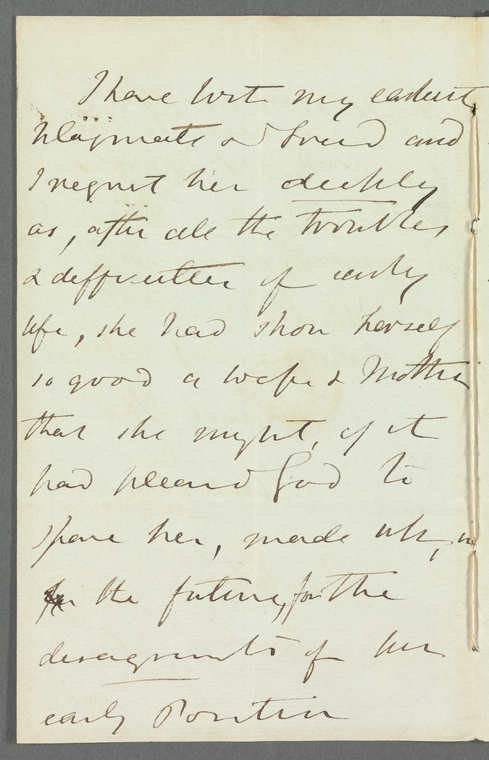 I have lost my earliest
playmate & friend and
I regret her deeply
as, after all the troubles
& difficulties of early
life, she had shown herself
so good a wife & Mother
that she might, if it
had pleased God to
spare her, made up, in
the future, for the
of her
early Position